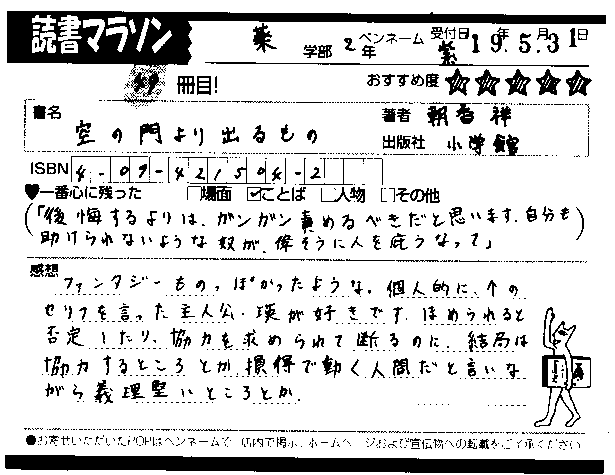 読書マラソン
薬 学部 2年 ペンネーム 紫 受付日 19年.5.月31日
49 冊目!
おすすめ度 ★★★★★
書名 空の門より出るもの
著者 朝香祥
出版社 小学館
ISBN 4-09-421504-2
♥一番心に残った □場面 ☑ことば □人物 □その他
(「後悔するよりは、ガンガン責めるべきだと思います。自分も
助けられないような奴が、偉そうに人を庇うなって」)
感想
ファンタジーものっぽかったような。個人的に、↑の
セリフを言った主人公・瑛が好きです。ほめられると
否定したり、協力を求められて断るのに、結局は
協力するところとか、損得で動く人間だと言いな
がら義理堅いところとか。
●お寄せいただいたPOPはペンネームで、店内で掲示、ホームページおよび宣伝物への転載をご了承ください